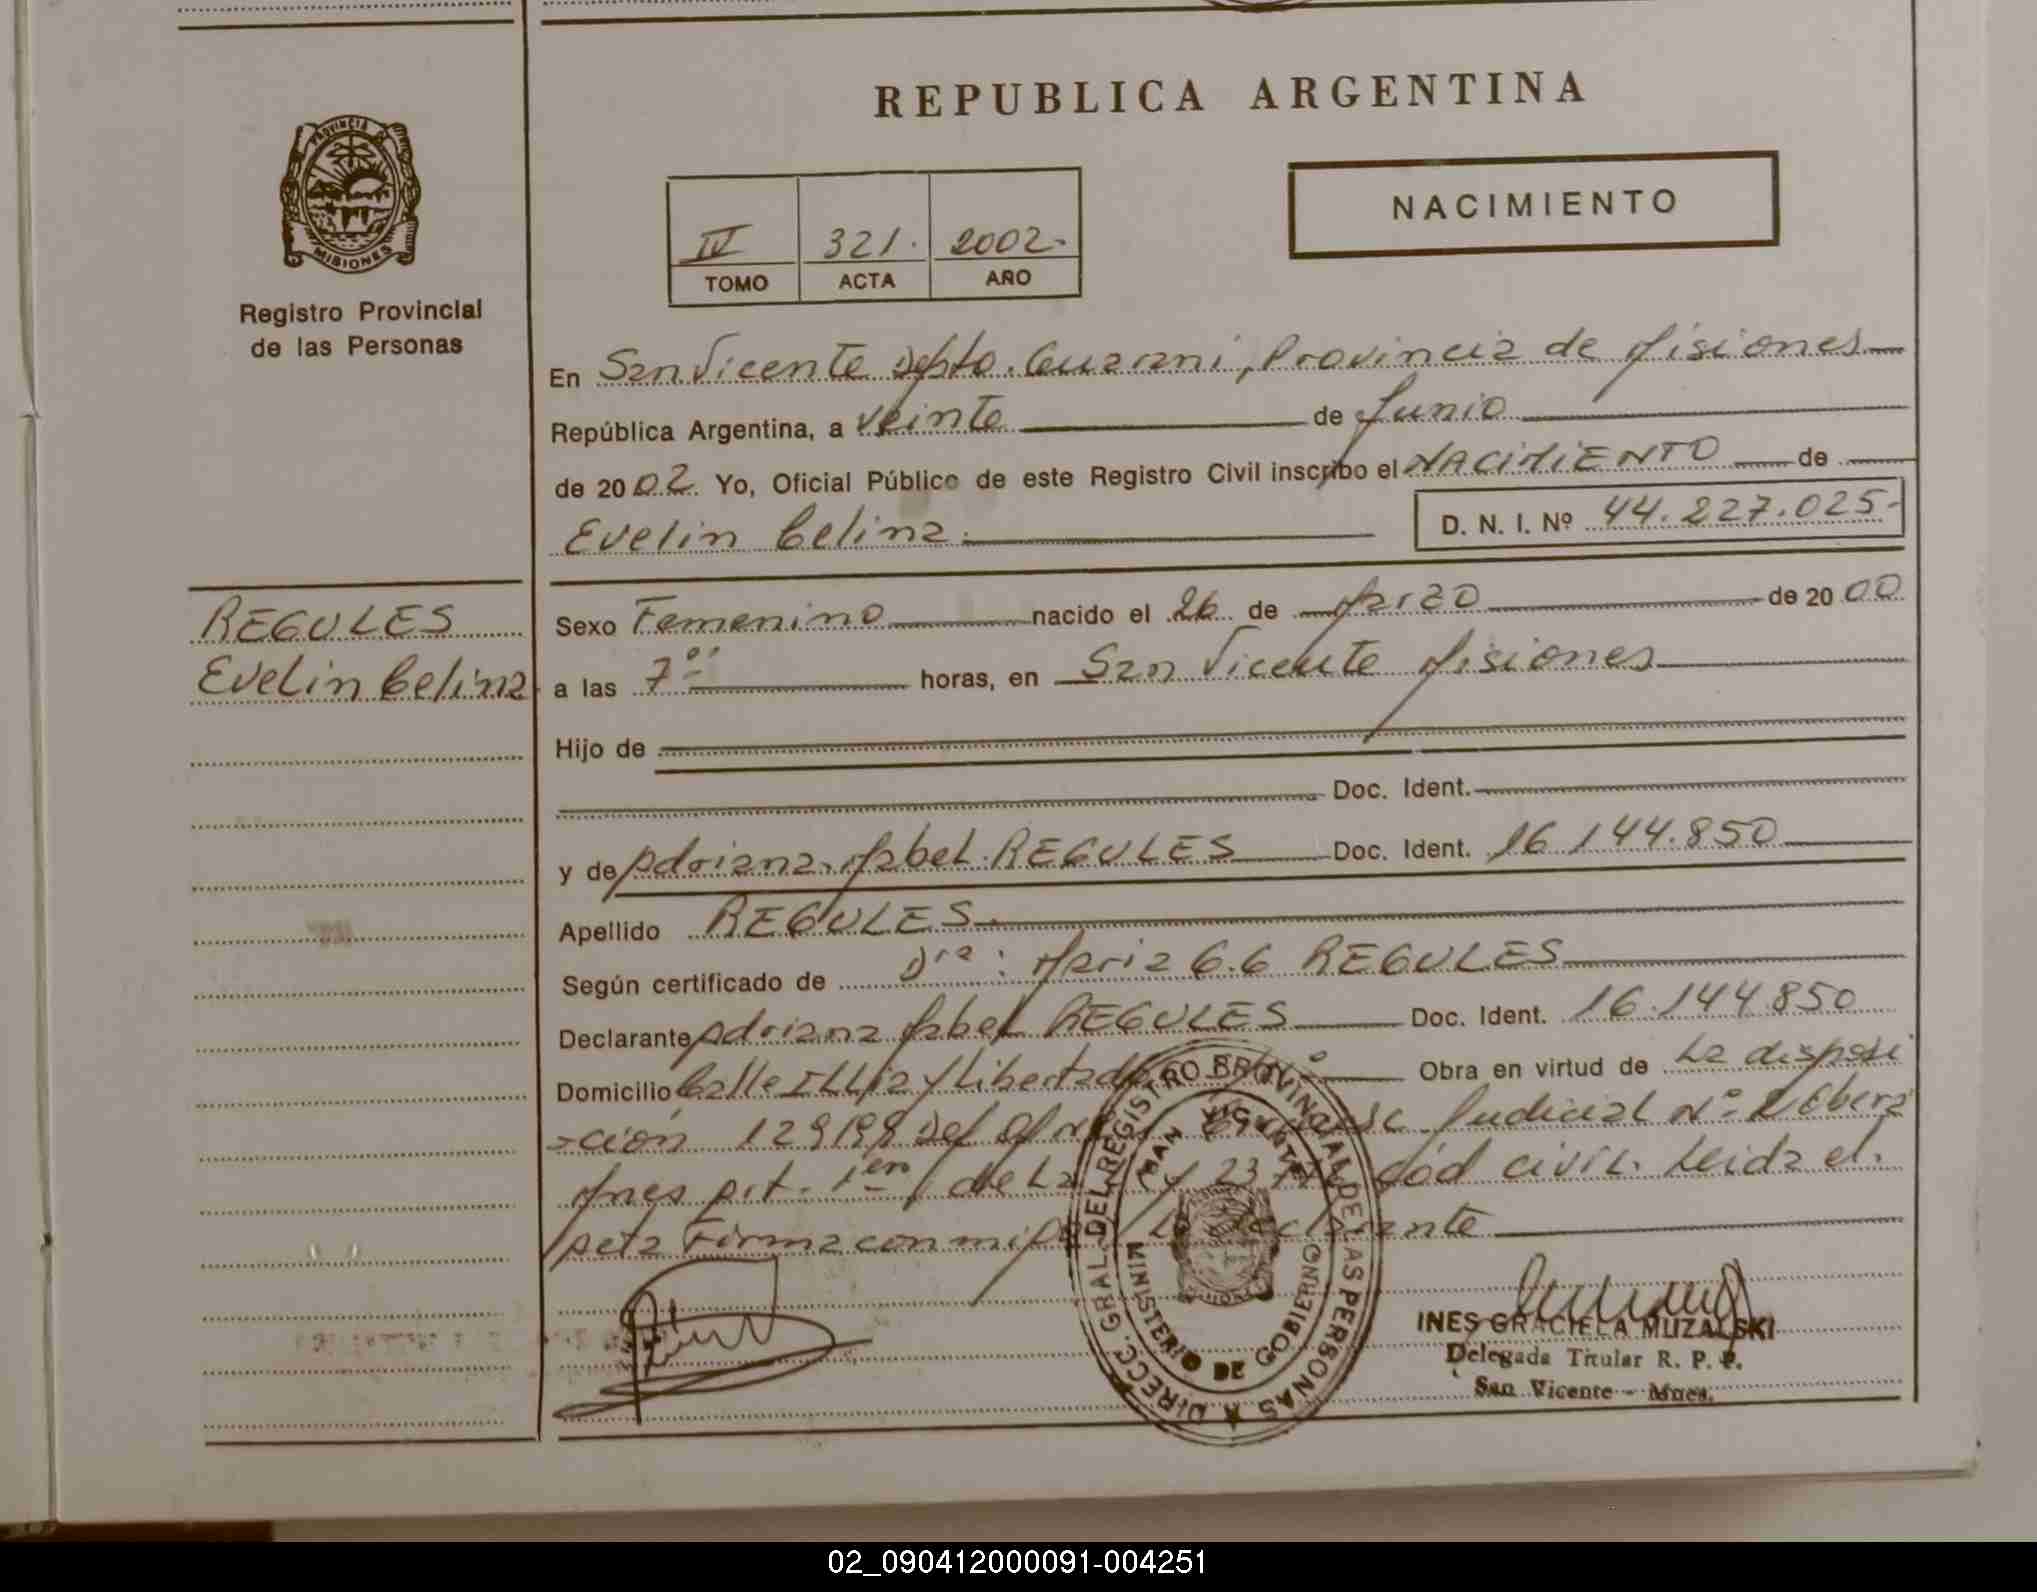 REPUBLICA ARGENTINA
PROVINCIA DE
MISIONES
Registro Provincial
de las Personas
NACIMIENTO
IV 321. 2002-
TOMO ACTA AÑO
En San Vicente Depto. Guarani, Provincia de Misiones
República Argentina, a Veinte de Junio
de 2002. Yo, Oficial Público de este Registro Civil inscribo el NACIMIENTO de
Evelin Celina. D. N. I. Nº 44.227.025-
REGULES
Evelin Celina
Sexo Femenino nacido el 26 de Marzo de 2000
a las 7 horas, en San Vicente Misiones
Hijo de
Doc. Ident.
y de Adriana Mabel REGULES Doc. Ident. 16.144.850
Apellido REGULES
Según certificado de Dra: Maria G.G REGULES
Declarante Adriana Mabel REGULES Doc. Ident. 16.144.850
Domicilio Calle Illia y Libertador Obra en virtud de La disposi
-ción 129199 Def Judicial Nº 2 Obera
Mnes art. 1er de La y 23 cód civil. Leida el.
Acta Firma con migo La declarante
DIRECC. GRAL. DEL REGISTRO PROVINCIAL DE LAS PERSONAS
MINISTERIO DE GOBIERNO
SAN VICENTE
INES GRACIELA MUZALSKI
Delegada Titular R. P. P.
San Vicente - Mnes.
02_090412000091-004251